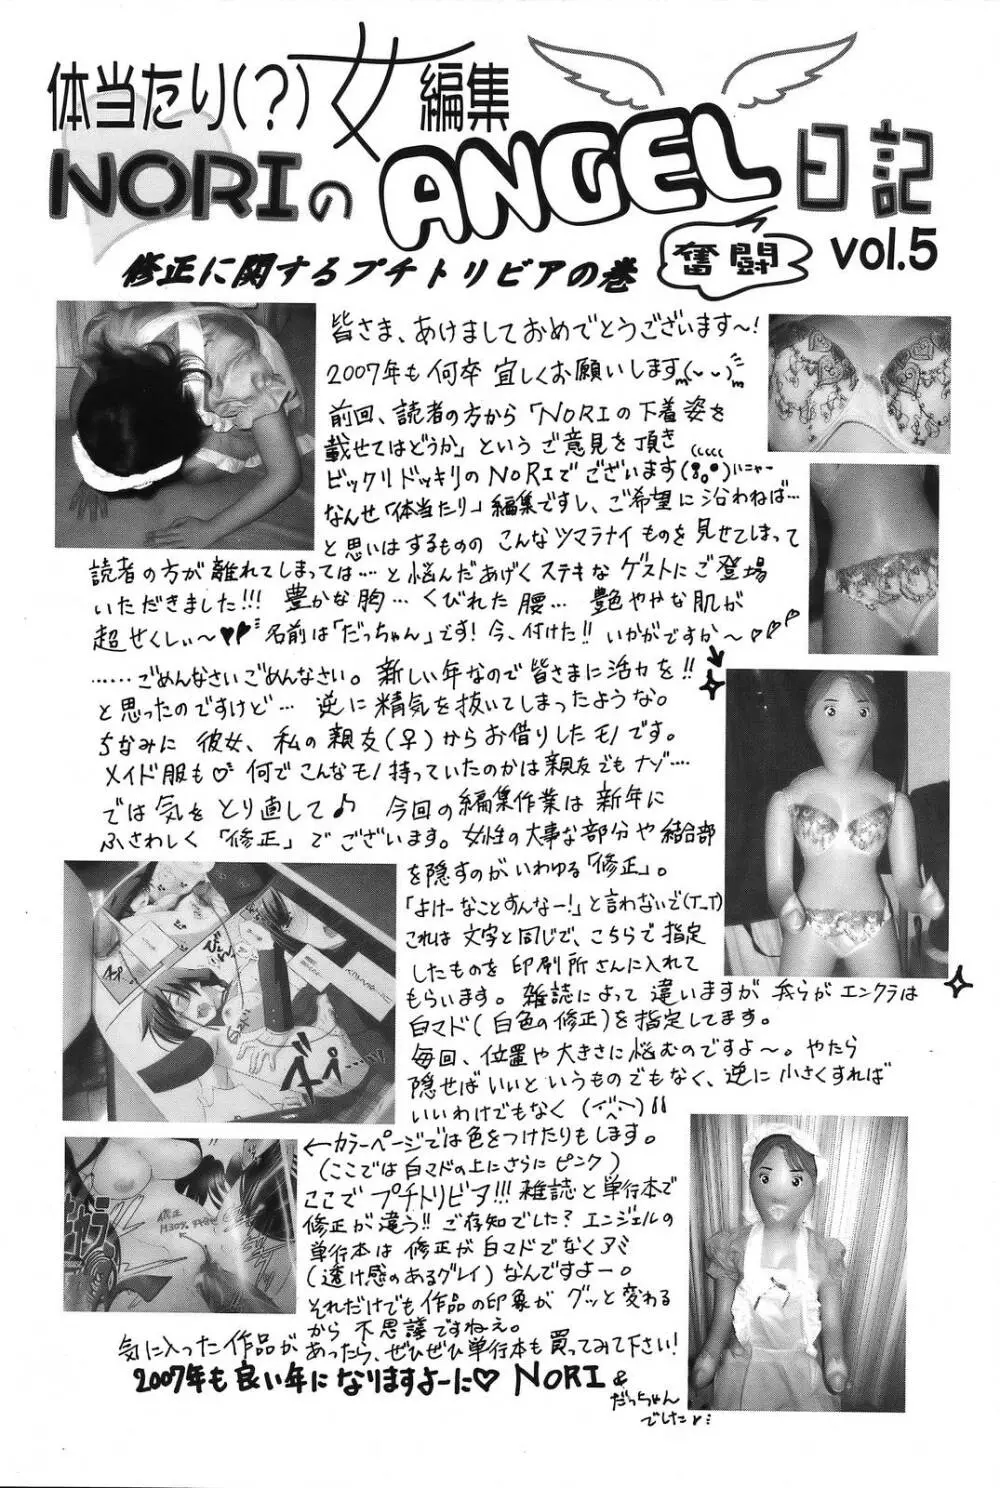 体当たり(?)女編集
NORIのANGEL日記
奮闘
vol.5
修正に関するプチトリビアの巻
皆さま、あけましておめでとうございます〜!
2007年も何卒宜しくお願いしますm(~ ~)m
前回、読者の方から「NORIの下着姿を
載せてはどうか」というご意見を頂き
ビックリドッキリのNORIでございます
なんせ「体当たり」編集ですし、ご希望に沿わねば…
と思いはするもののこんなツマラナイものを見せてしまって
読者の方が離れてしまっては…と悩んだあげくステキなゲストにご登場
いただきました!!! 豊かな胸…くびれた腰…艶ややな肌が
超せくしぃ〜♥♥ 名前は「だっちゃん」です!今、付けた!! いかがですか〜♥♥
……ごめんなさいごめんなさい。新しい年なので皆さまに活力を!!
と思ったのですけど…逆に精気を抜いてしまったような。
ちなみに彼女、私の親友(♀)からお借りしたモノです。
メイド服も♡ 何でこんなモノ持っていたのかは親友でもナゾ…
では気をとり直して♪ 今回の編集作業は新年に
ふさわしく「修正」でございます。女性の大事な部分や結合部
を隠すのがいわゆる「修正」。
「よけーなことすんなー!」と言わないで(T_T)
これは文字と同じで、こちらで指定
したものを印刷所さんに入れて
もらいます。雑誌によって違いますが我らがエンクラは
白マド(白色の修正)を指定してます。
毎回、位置や大きさに悩むのですよ〜。やたら
隠せばいいというものでもなく、逆に小さくすれば
いいわけでもなく
←カラーページでは色をつけたりもします。
(ここでは白マドの上にさらにピンク)
ここでプチトリビア!!! 雑誌と単行本で
修正が違う!! ご存知でした? エンジェルの
単行本は修正が白マドでなくアミ
(透け感のあるグレイ)なんですよー。
それだけでも作品の印象がグッと変わる
から不思議ですねぇ。
気に入った作品があったら、ぜひぜひ単行本も買ってみて下さい!
2007年も良い年になりますよーに♡ NORI &
だっちゃん
でした
修正
M30%